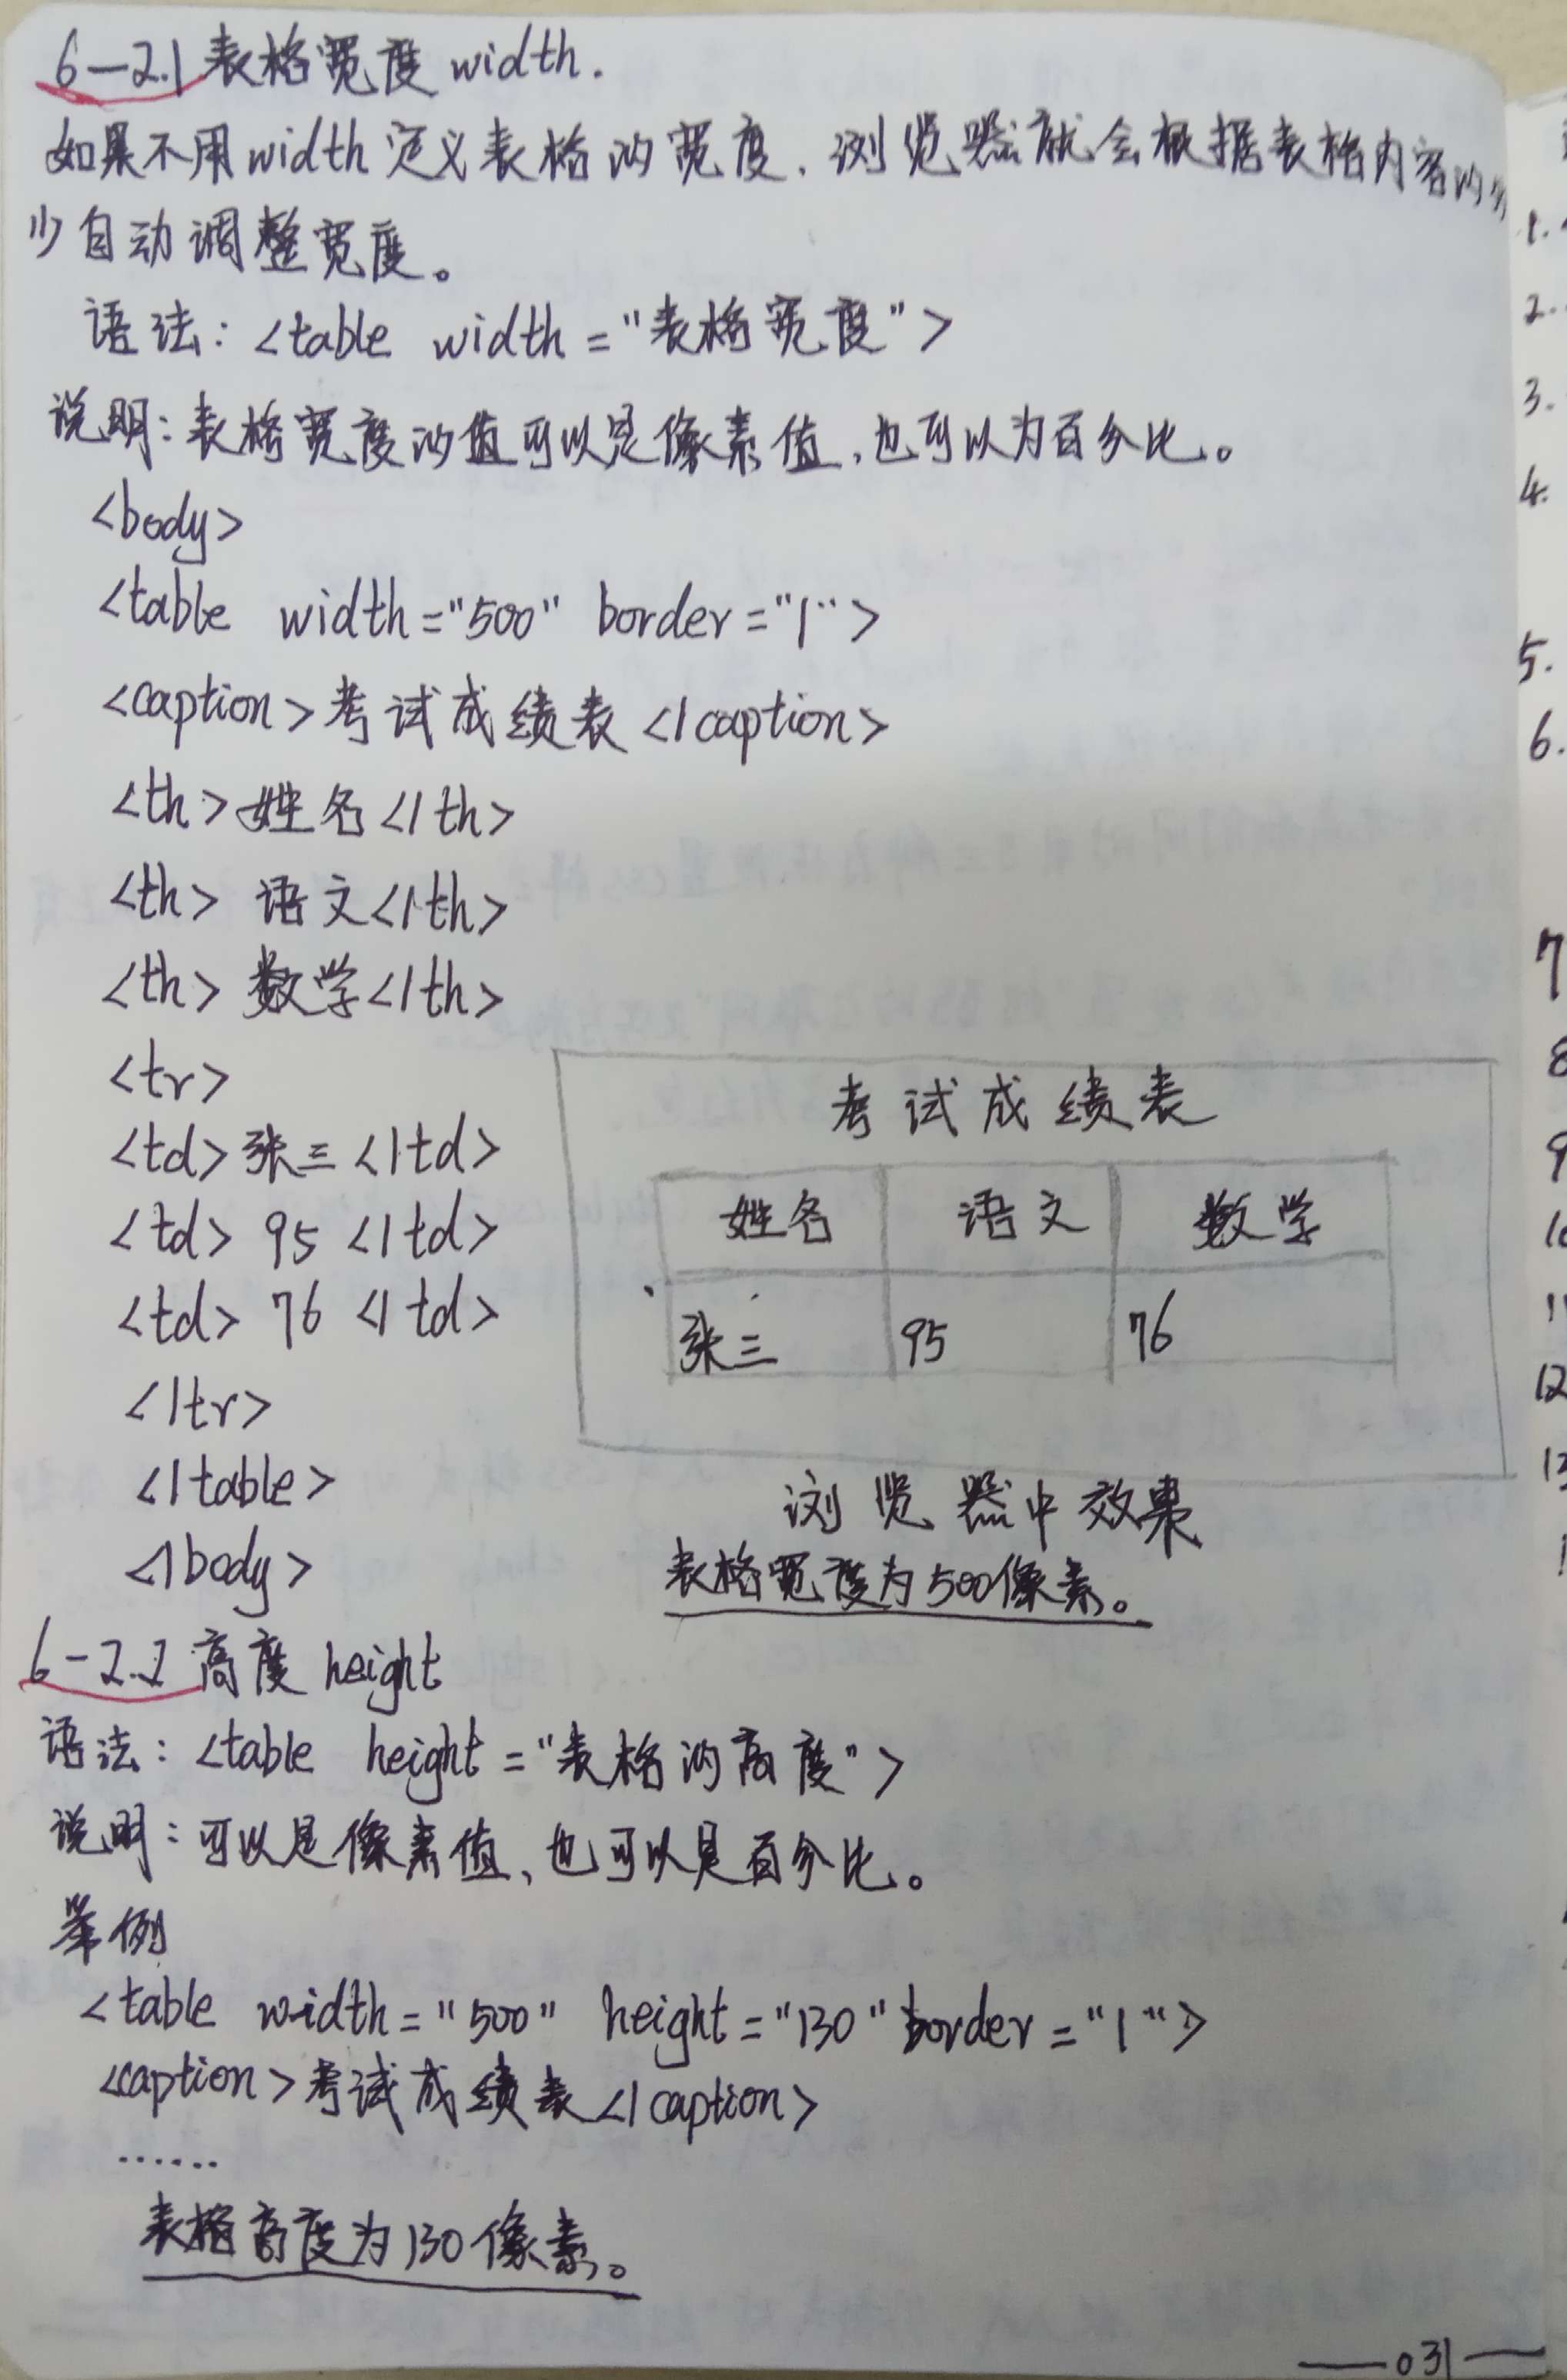 6-2.1 表格宽度 width.
如果不用width定义表格的宽度,浏览器就会根据表格内容的多
少自动调整宽度。
语法: <table width="表格宽度">
说明: 表格宽度的值可以是像素值,也可以为百分比。
<body>
<table width="500" border="1">
<caption>考试成绩表</caption>
<th>姓名</th>
<th>语文</th>
<th>数学</th>
<tr>
<td>张三</td>
<td>95</td>
<td>76</td>
</tr>
</table>
</body>
考试成绩表
姓名 语文 数学
张三 95 76
浏览器中效果
表格宽度为500像素。
6-2.2 高度 height
语法: <table height="表格的高度">
说明: 可以是像素值、也可以是百分比。
举例
<table width="500" height="130" border="1">
<caption>考试成绩表</caption>
......
表格高度为130像素。
—031—
1.
2.
3.
4.
5.
6.
7
8
9
11
12